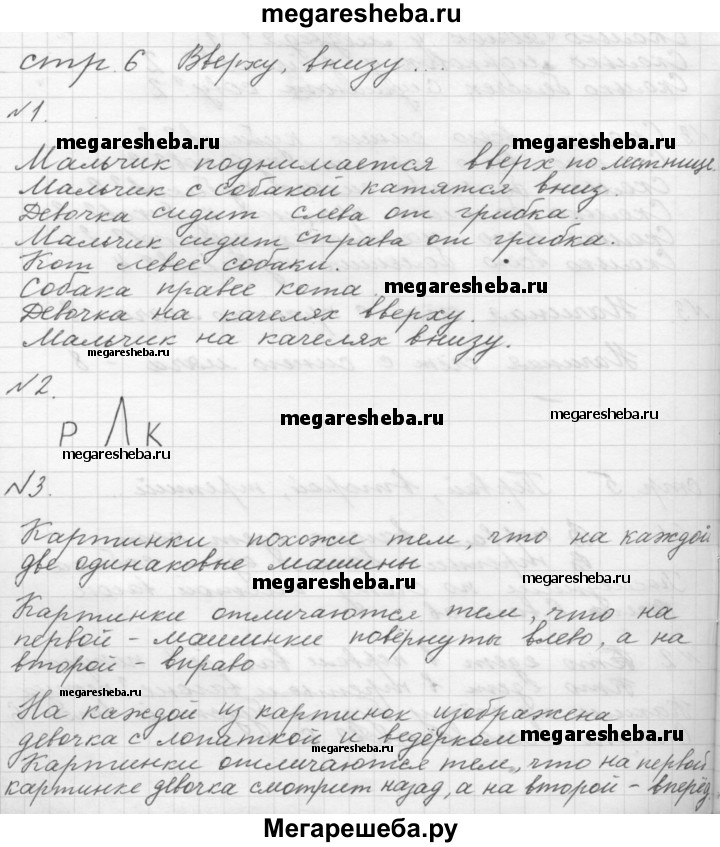 megaresheba.ru
стр. 6 Вверху, внизу...
№1.
megaresheba.ru
Мальчик поднимается вверх по лестнице.
Мальчик с собакой катятся вниз.
Девочка сидит слева от грибка.
Мальчик сидит справа от грибка.
Кот левее собаки.
Собака правее кота.
megaresheba.ru
Девочка на качелях вверху.
Мальчик на качелях внизу.
megaresheba.ru
№2.
megaresheba.ru
Р Л К
megaresheba.ru
№3.
Картинки похожи тем, что на каждой
megaresheba.ru
две одинаковые машины
megaresheba.ru
megaresheba.ru
Картинки отличаются тем, что на
первой - машинки повёрнуты влево, а на
второй - вправо
megaresheba.ru
На каждой из картинок изображена
девочка с лопаткой и ведёрком
megaresheba.ru
megaresheba.ru
Картинки отличаются тем, что на первой
картинке девочка смотрит назад, а на второй - вперёд.
Мегарешеба.ру